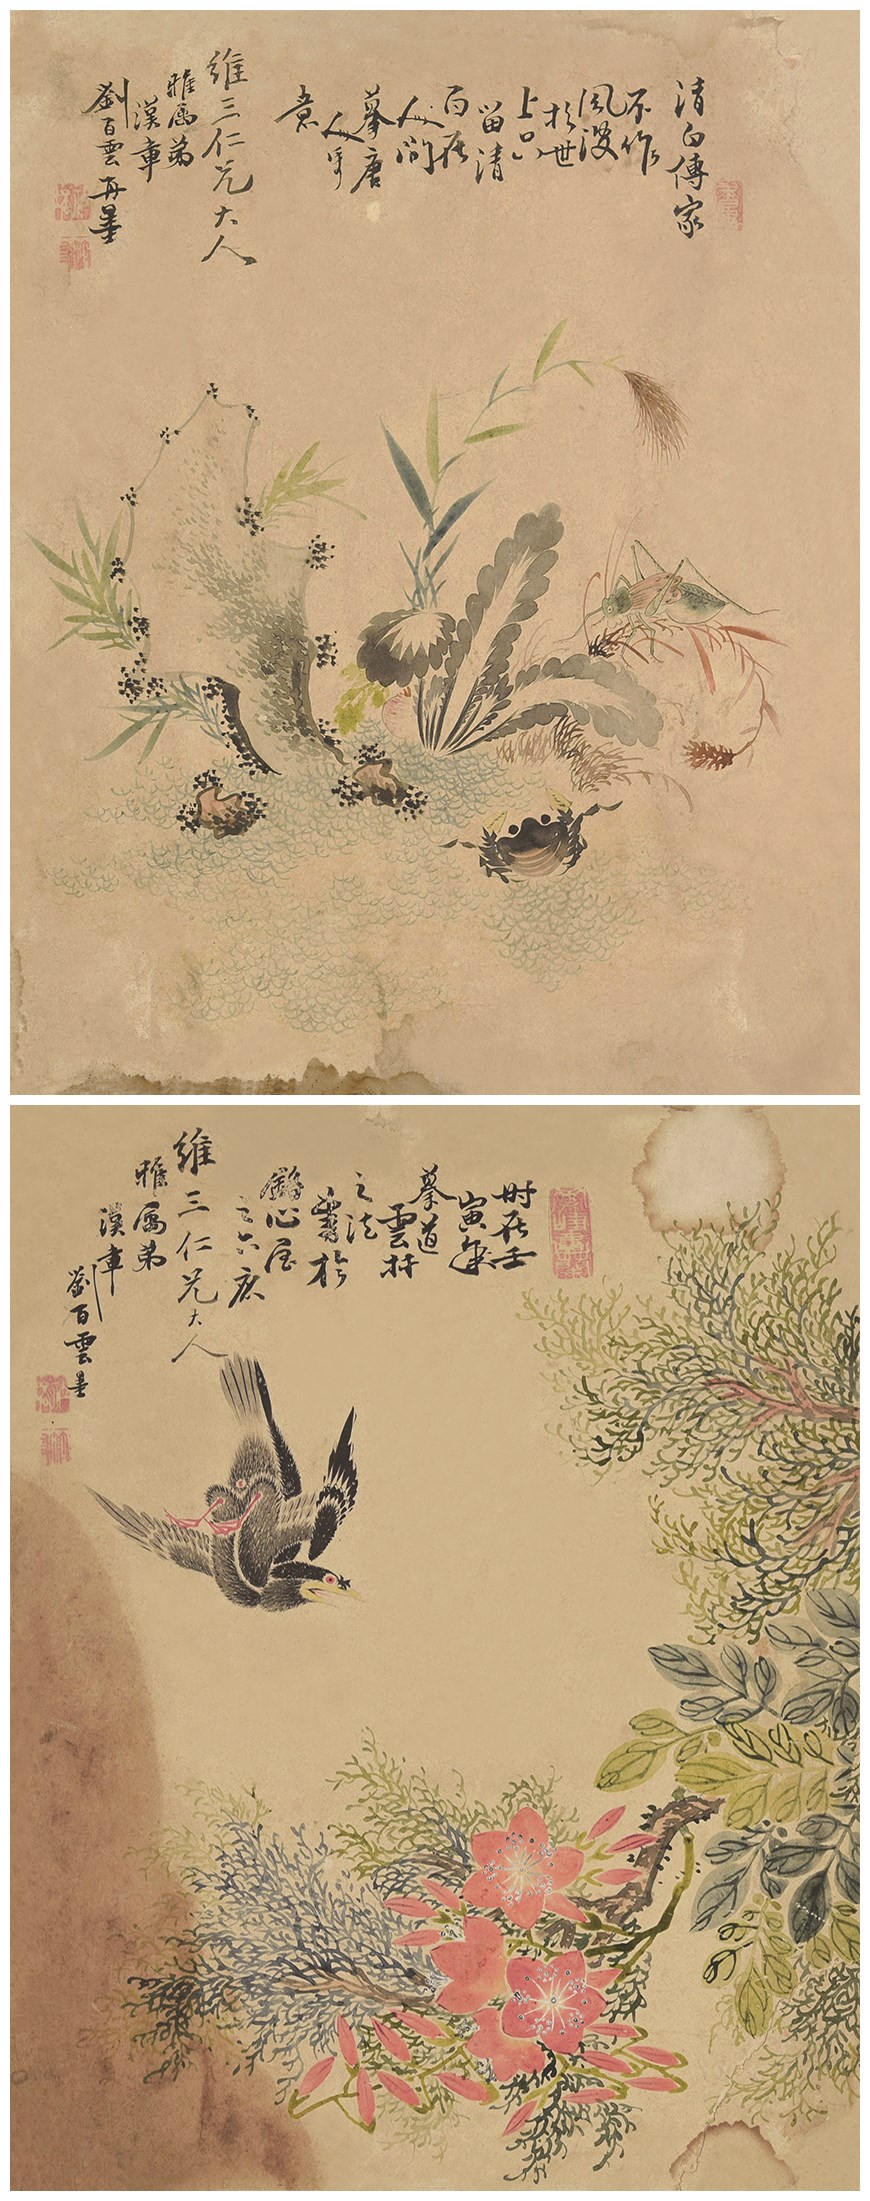 清白傳家
不作
風波
於世
上只
留清
白在
人間
摹唐
人筆
意
維三仁兄大人
雅属弟
漢章
劉百雲再畫
时在壬
寅年
摹道
雲軒
之法
畫於
鶴心屋
之六底
維三仁兄大人
雅属弟
漢章
劉百雲畫